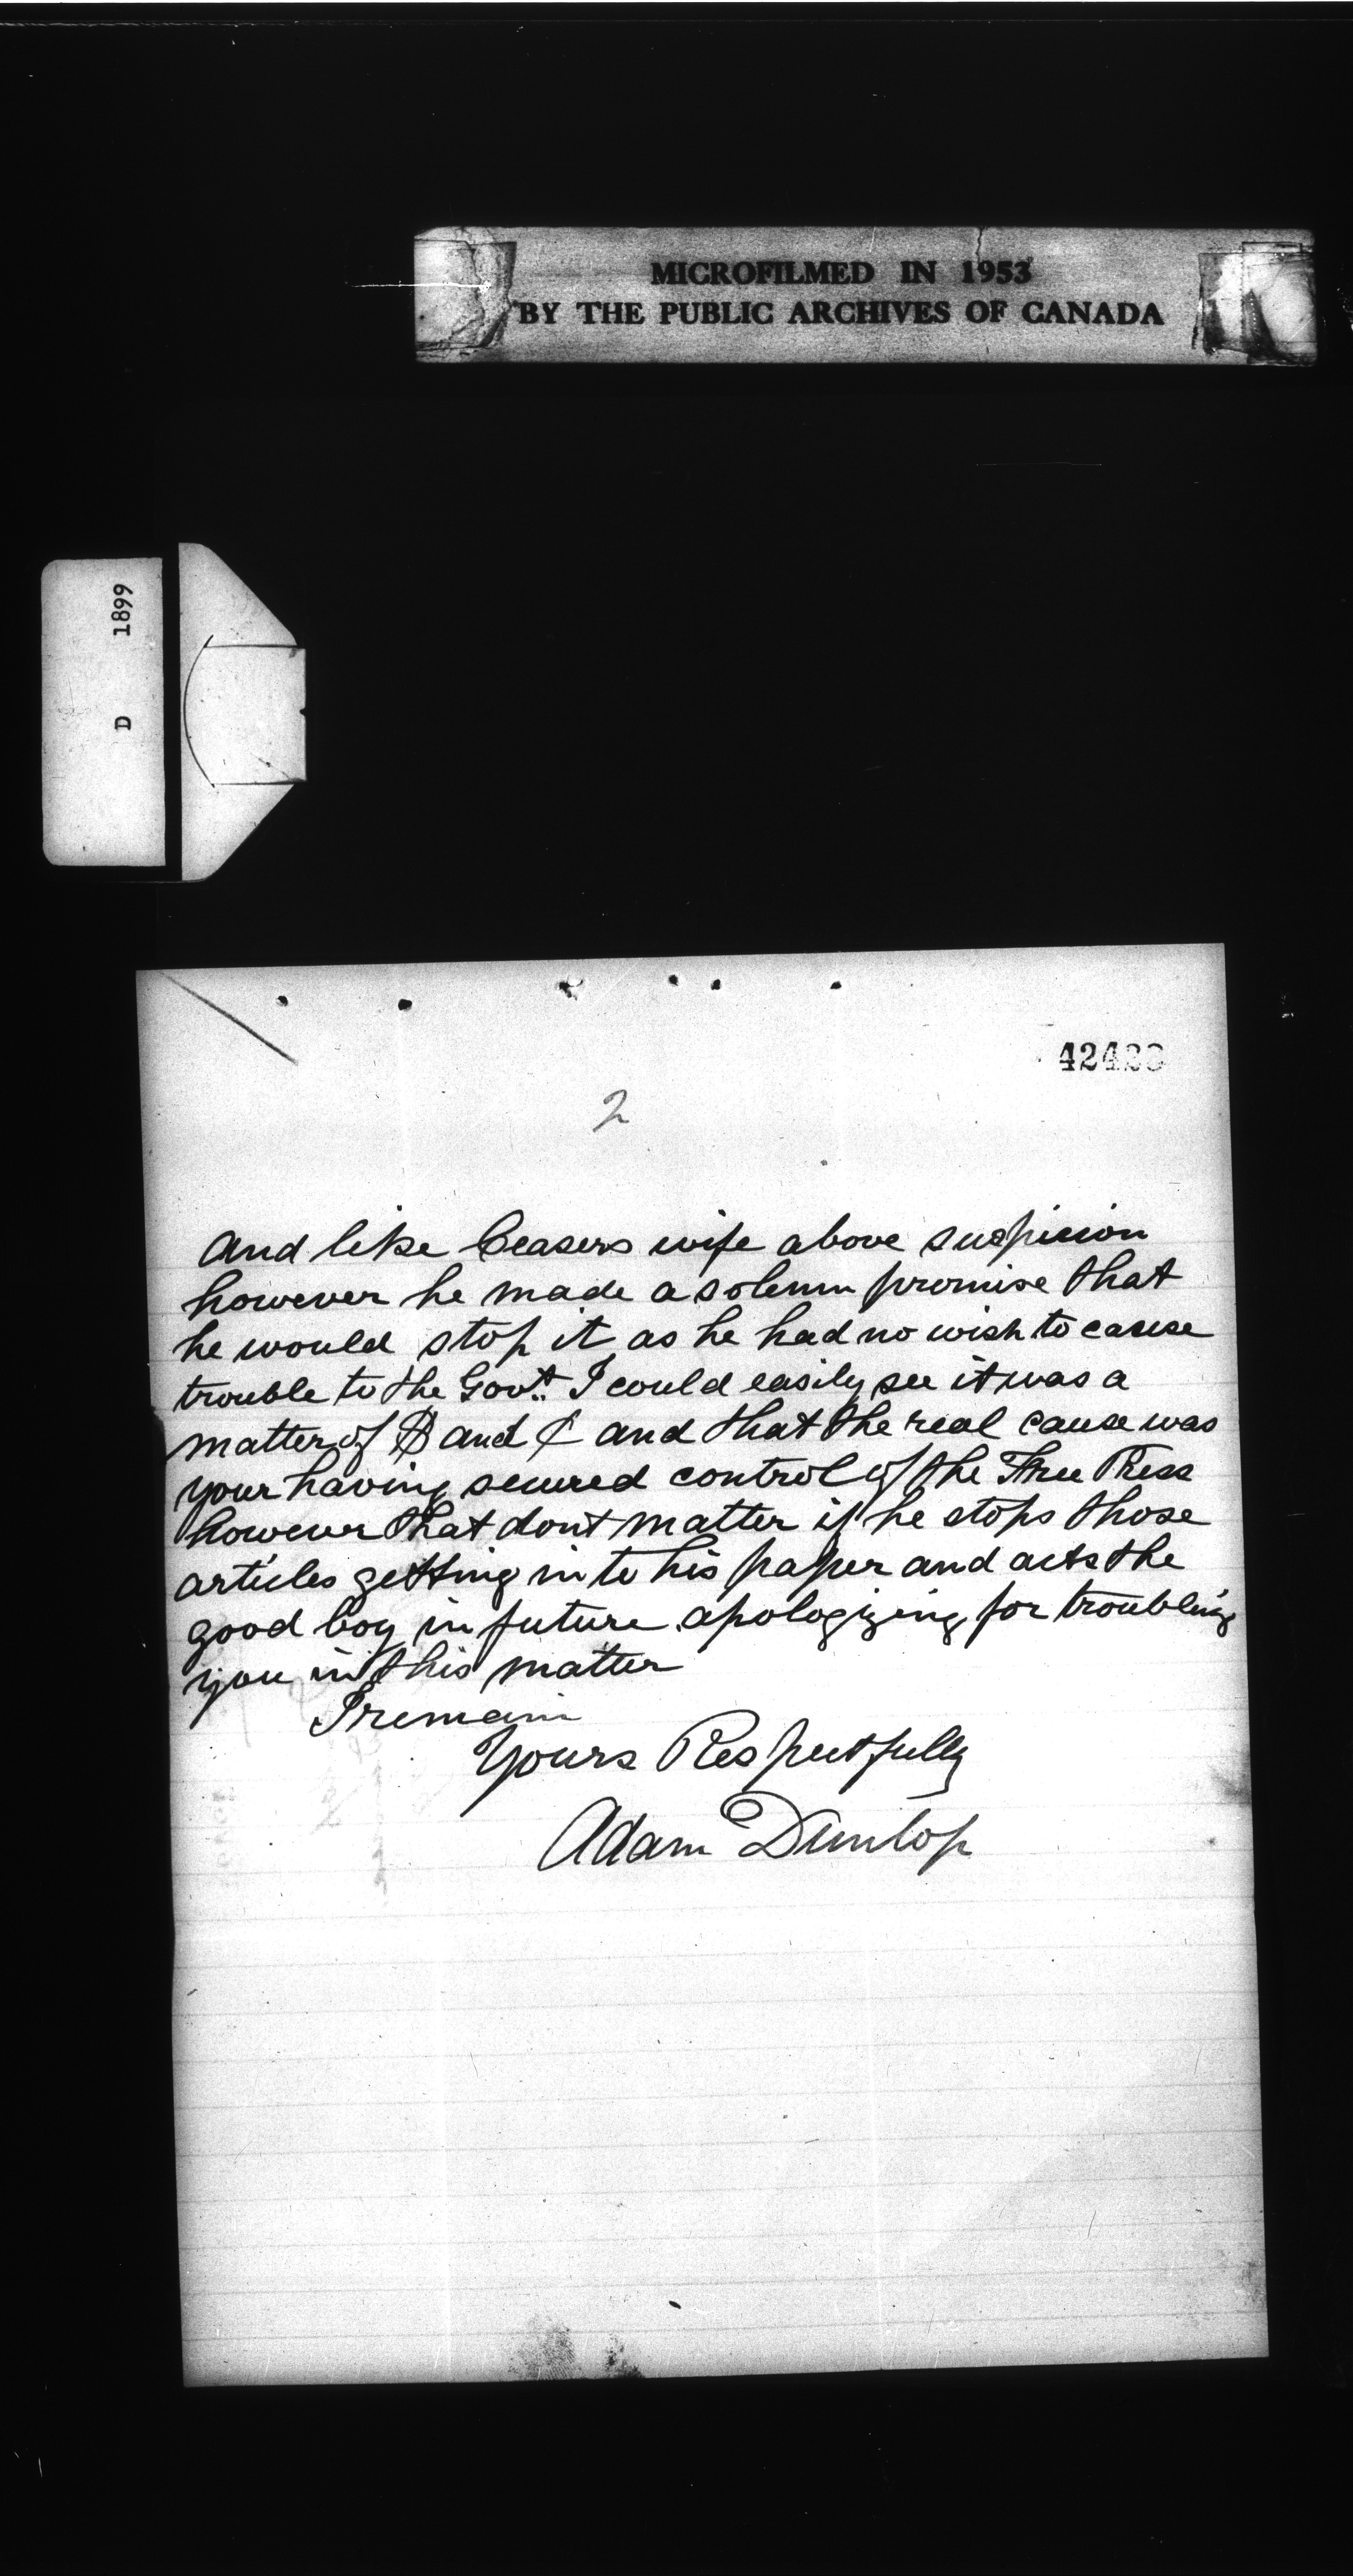 MICROFILMED IN 1953
BY THE PUBLIC ARCHIVES OF CANADA
D 1899
2
and like Ceasers wife above suspicion
however he made a solemn promise that
he would stop it as he had no wish to cause
trouble to the Govt. I could easily see it was a
matter of $ and ¢ and that the real cause was
your having secured control of the Free Press
however that dont matter if he stops those
articles getting in to his paper and acts the
good boy in future apologizing for troubling
you in this matter
I remain
Yours Respectfully
Adam Dunlop